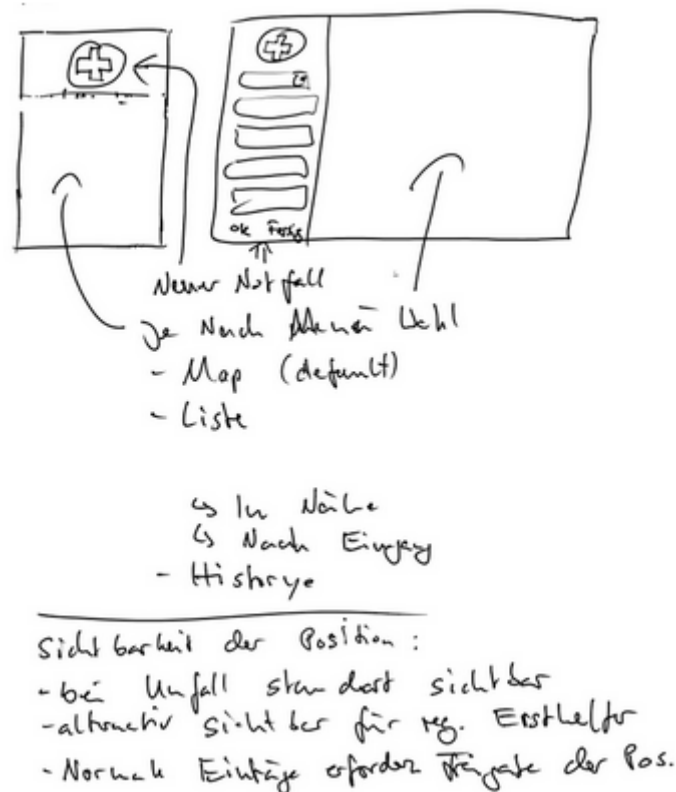 ok Fertig
Neuer Notfall
Je Nach Menü Wahl
- Map (default)
- Liste
↳ In Nähe
↳ Nach Eingang
- Historye
Sichtbarkeit der Position:
- bei Unfall standort sichtbar
- alternativ sichtbar für reg. Ersthelfer
- Normale Einträge erfordern Freigabe der Pos.